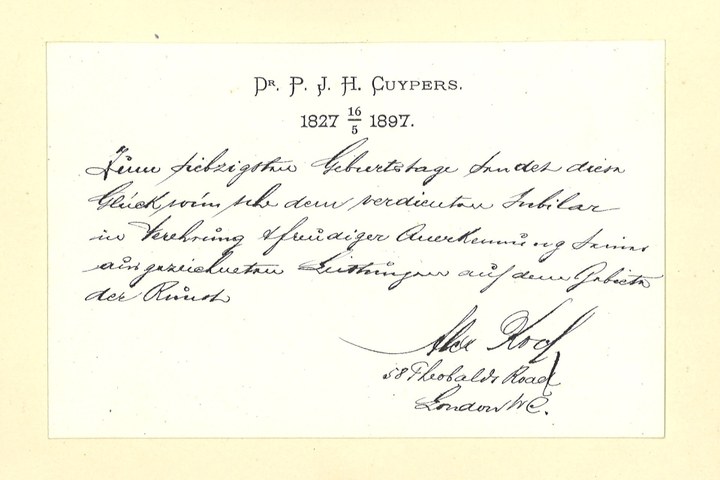 Dr. P. J. H. Cuypers.
1827 16/5 1897.
Zum siebzigsten Geburtstage sendet diese
Glückwünsche dem verdienten Jubilar
in Verehrung & freudiger Anerkennung seiner
ausgezeichneten Leistungen auf dem Gebiete
der Kunst
Alex Koch
58 Theobalds Road
London W.C.